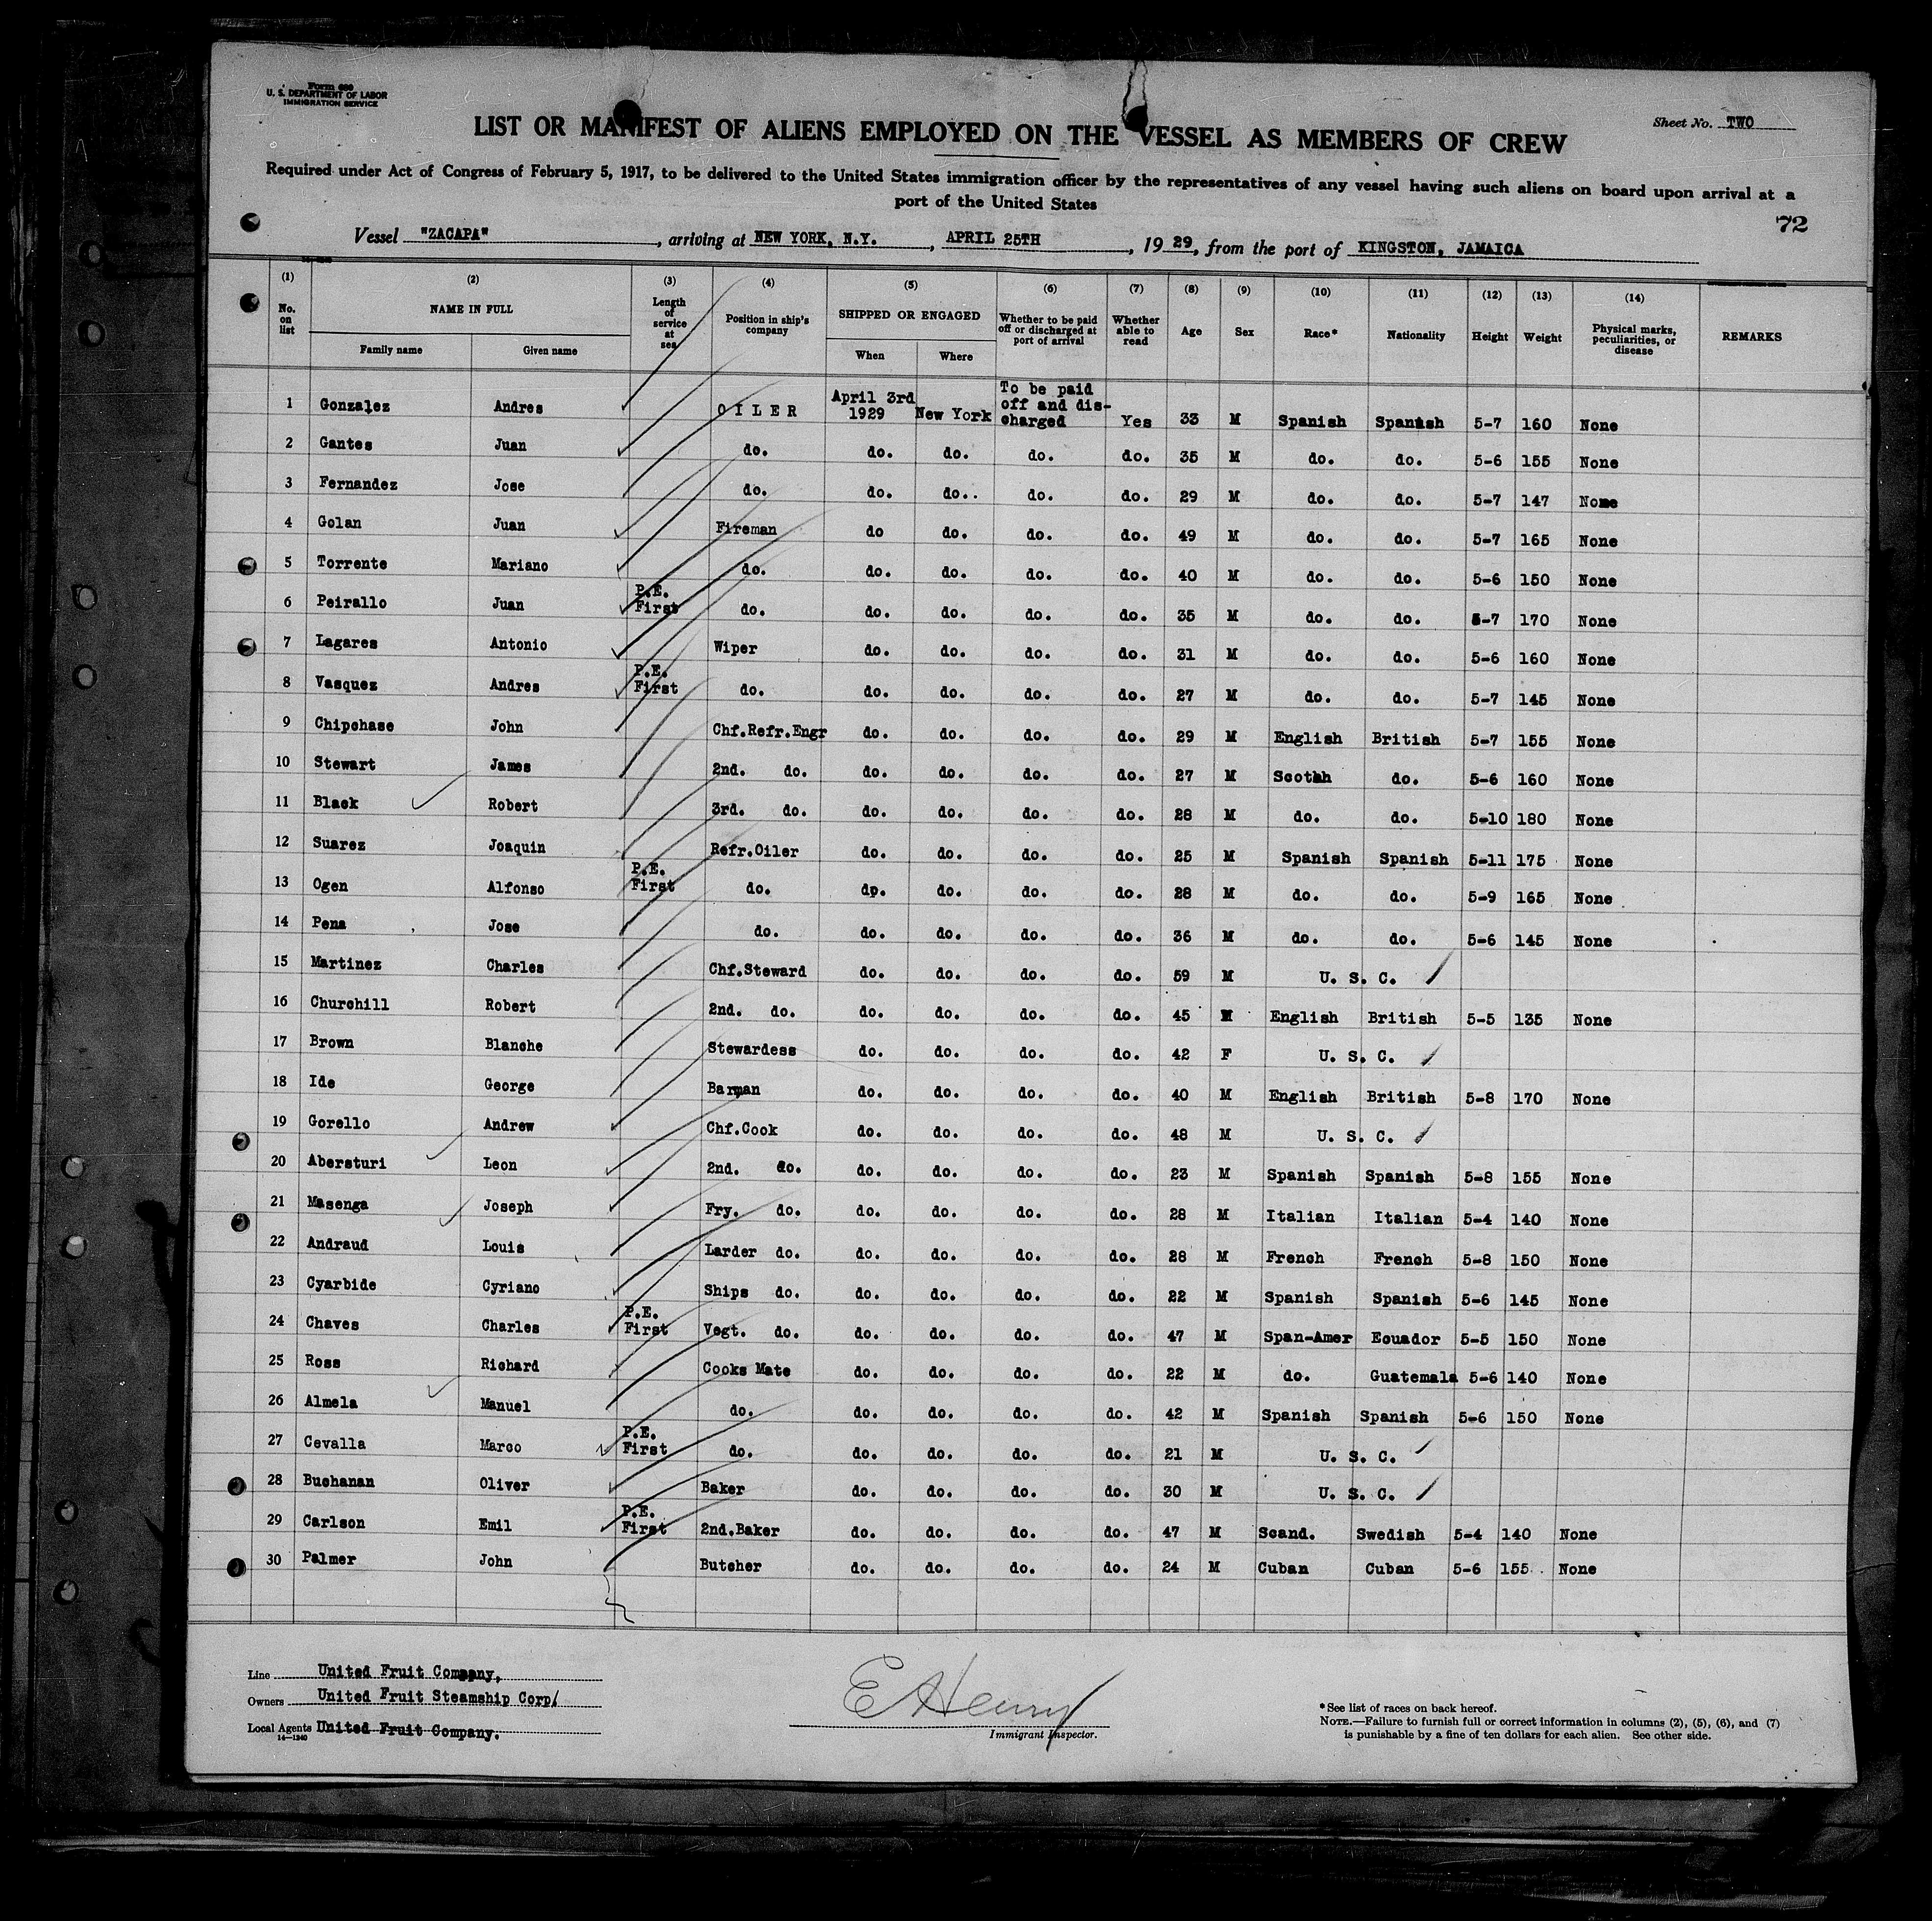 Form 689
U. S. DEPARTMENT OF LABOR
IMMIGRATION SERVICE
Sheet No. TWO
LIST OR MANIFEST OF ALIENS EMPLOYED ON THE VESSEL AS MEMBERS OF CREW
Required under Act of Congress of February 5, 1917, to be delivered to the United States immigration officer by the representatives of any vessel having such aliens on board upon arrival at a
port of the United States
72
Vessel "ZACAPA", arriving at NEW YORK, N.Y., APRIL 25TH, 1929, from the port of KINGSTON, JAMAICA
(1) No. on list (2) NAME IN FULL Family name Given name (3) Length of service at sea (4) Position in ship's company (5) SHIPPED OR ENGAGED When Where (6) Whether to be paid off or discharged at port of arrival (7) Whether able to read (8) Age (9) Sex (10) Race* (11) Nationality (12) Height (13) Weight (14) Physical marks, peculiarities, or disease REMARKS
1 Gonzalez Andres OILER April 3rd 1929 New York To be paid off and dis-charged Yes 33 M Spanish Spanish 5-7 160 None
2 Gantes Juan do. do. do. do. do. 35 M do. do. 5-6 155 None
3 Fernandez Jose do. do. do.. do. do. 29 M do. do. 5-7 147 None
4 Golan Juan Fireman do do. do. do. 49 M do. do. 5-7 165 None
5 Torrente Mariano do. do. do. do. do. 40 M do. do. 5-6 150 None
6 Peirallo Juan P.E. First do. do. do. do. do. 35 M do. do. 5-7 170 None
7 Lagares Antonio Wiper do. do. do. do. 31 M do. do. 5-6 160 None
8 Vasquez Andres P.E. First do. do. do. do. do. 27 M do. do. 5-7 145 None
9 Chipchase John Chf.Refr.Engr do. do. do. do. 29 M English British 5-7 155 None
10 Stewart James 2nd. do. do. do. do. do. 27 M Scotch do. 5-6 160 None
11 Black Robert 3rd. do. do. do. do. do. 28 M do. do. 5-10 180 None
12 Suarez Joaquin Refr.Oiler do. do. do. do. 25 M Spanish Spanish 5-11 175 None
13 Ogen Alfonso P.E. First do. dp. do. do. do. 28 M do. do. 5-9 165 None
14 Pena Jose do. do. do. do. do. 36 M do. do. 5-6 145 None
15 Martinez Charles Chf.Steward do. do. do. do. 59 M U. S. C.
16 Churchill Robert 2nd. do. do. do. do. do. 45 M English British 5-5 135 None
17 Brown Blanche Stewardess do. do. do. do. 42 F U. S. C.
18 Ide George Barman do. do. do. do. 40 M English British 5-8 170 None
19 Gorello Andrew Chf.Cook do. do. do. do. 48 M U. S. C.
20 Abersturi Leon 2nd. do. do. do. do. do. 23 M Spanish Spanish 5-8 155 None
21 Masenga Joseph Fry. do. do. do. do. do. 28 M Italian Italian 5-4 140 None
22 Andraud Louis Larder do. do. do. do. do. 28 M French French 5-8 150 None
23 Cyarbide Cyriano Ships do. do. do. do. do. 22 M Spanish Spanish 5-6 145 None
24 Chaves Charles P.E. First Vegt. do. do. do. do. do. 47 M Span-Amer Ecuador 5-5 150 None
25 Ross Richard Cooks Mate do. do. do. do. 22 M do. Guatemala 5-6 140 None
26 Almela Manuel do. do. do. do. do. 42 M Spanish Spanish 5-6 150 None
27 Cevalla Marco P.E. First do. do. do. do. do. 21 M U. S. C.
28 Buchanan Oliver Baker do. do. do. do. 30 M U. S. C.
29 Carlson Emil P.E. First 2nd.Baker do. do. do. do. 47 M Scand. Swedish 5-4 140 None
30 Palmer John Butcher do. do. do. do. 24 M Cuban Cuban 5-6 155 None
Line United Fruit Company,
Owners United Fruit Steamship Corp.
Local Agents United Fruit Company.
14-1240
E Henry
Immigrant Inspector.
*See list of races on back hereof.
NOTE.—Failure to furnish full or correct information in columns (2), (5), (6), and (7)
is punishable by a fine of ten dollars for each alien. See other side.